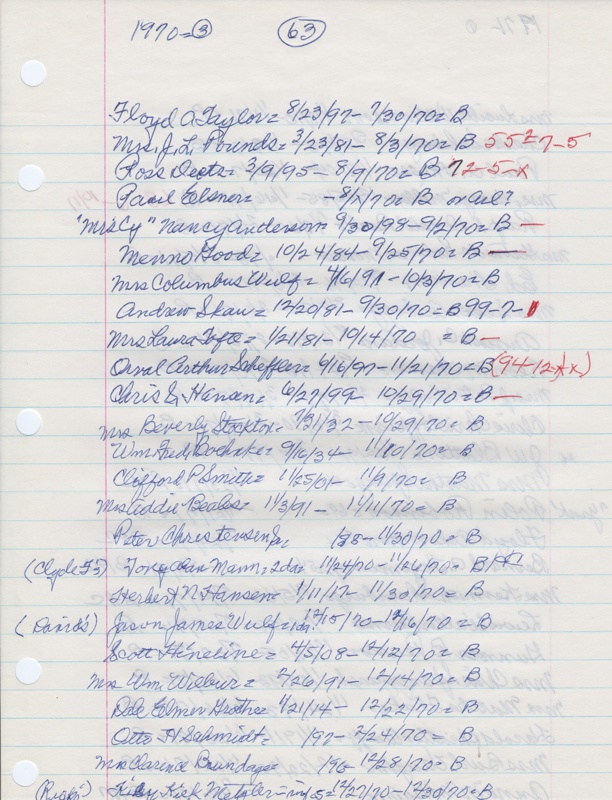 1970=③ 63
Floyd A Taylor= 8/23/97- 7/30/70= B
Mrs. J. L. Pounds= 3/23/81- 8/3/70= B 55 27-5
Ross Deets= 3/9/95- 8/9/70= B 72-5-x
Paul Elsner= -8/x/70= B or Asl?
"Mrs Cy" Nancy Anderson= 9/30/98-9/2/70= B —
Menno Good= 10/24/84- 9/25/70= B —
Mrs Columbus Wulf= 4/6/91-10/3/70= B
Andrew Skaw= 12/20/81- 9/30/70= B 99-7-
Mrs Laura Tofte= 1/21/81-10/14/70 = B —
Orval Arthur Scheffler= 4/16/97-11/21/70= B
Chris S. Hansen= 6/27/99- 10/29/70= B —
Mrs Beverly Stockton= 7/31/32-10/29/70= B
Wm Fred 9/16/34- 11/10/70= B
Clifford P Smith= 1/25/01- 11/9/70= B
Mrs Addie Beales= 11/3/91- 11/11/70= B
Peter Christensen Sr. /88-11/30/70= B
(Clyde F's) Mann=2da= 11/24/70-11/26/70= B
Herbert N Hansen= 1/11/17- 11/30/70= B
(David's) Jason James Wulf= 12/15/70-12/16/70= B
Scott Hineline= 4/5/08-12/12/70= B
Mrs Wm. Wilbur= 2/26/91-12/14/70= B
Dale Elmer Grothe= 1/21/14- 12/22/70= B
Otto H Schmidt= /97-2/24/70= B
Mrs Clarence Brundage= /96-12/28/70= B
Kirk Metzler 12/27/70-12/30/70= B